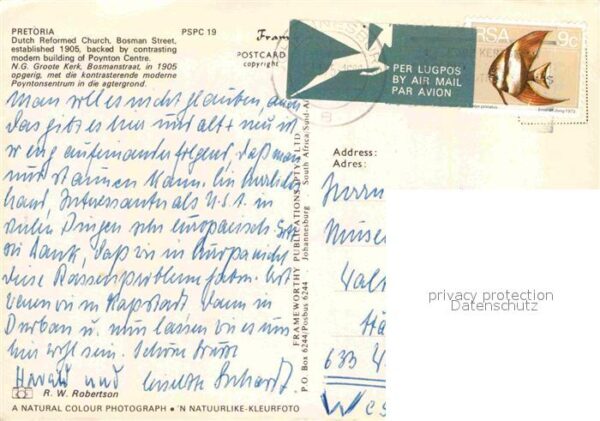 PRETORIA PSPC 19
Dutch Reformed Church, Bosman Street,
established 1905, backed by contrasting
modern building of Poynton Centre.
N.G. Groote Kerk, Bosmanstraat, in 1905
opgerig, met die kontrasterende moderne
Poyntonsentrum in die agtergrond.
POSTCARD
copyright
PER LUGPOS
BY AIR MAIL
PAR AVION
RSA 9c
Man soll es nicht glauben, auch
das gibt es hier und alt + neu ist
so eng aufeinander folgend, daß man
nur staunen kann. Ein
Interessanter als U.S.A. in
vielen Dingen sehr europäisch. Gott
sei Dank, daß wir in Europa nicht
diese Rassenprobleme haben. Erst
waren wir in Kapstadt dann in
Durban u. nun lassen wir es uns
hier wohl sein. Schöne Grüße
Harald und
R. W. Robertson
A NATURAL COLOUR PHOTOGRAPH • 'N NATUURLIKE-KLEURFOTO
FRAMEWORTHY PUBLICATIONS (PTY) LTD
P.O. Box 6244/Posbus 6244 - Johannesburg - South Africa/Suid-A
Address:
Adres:
Herrn
633 W
Wes
privacy protection
Datenschutz